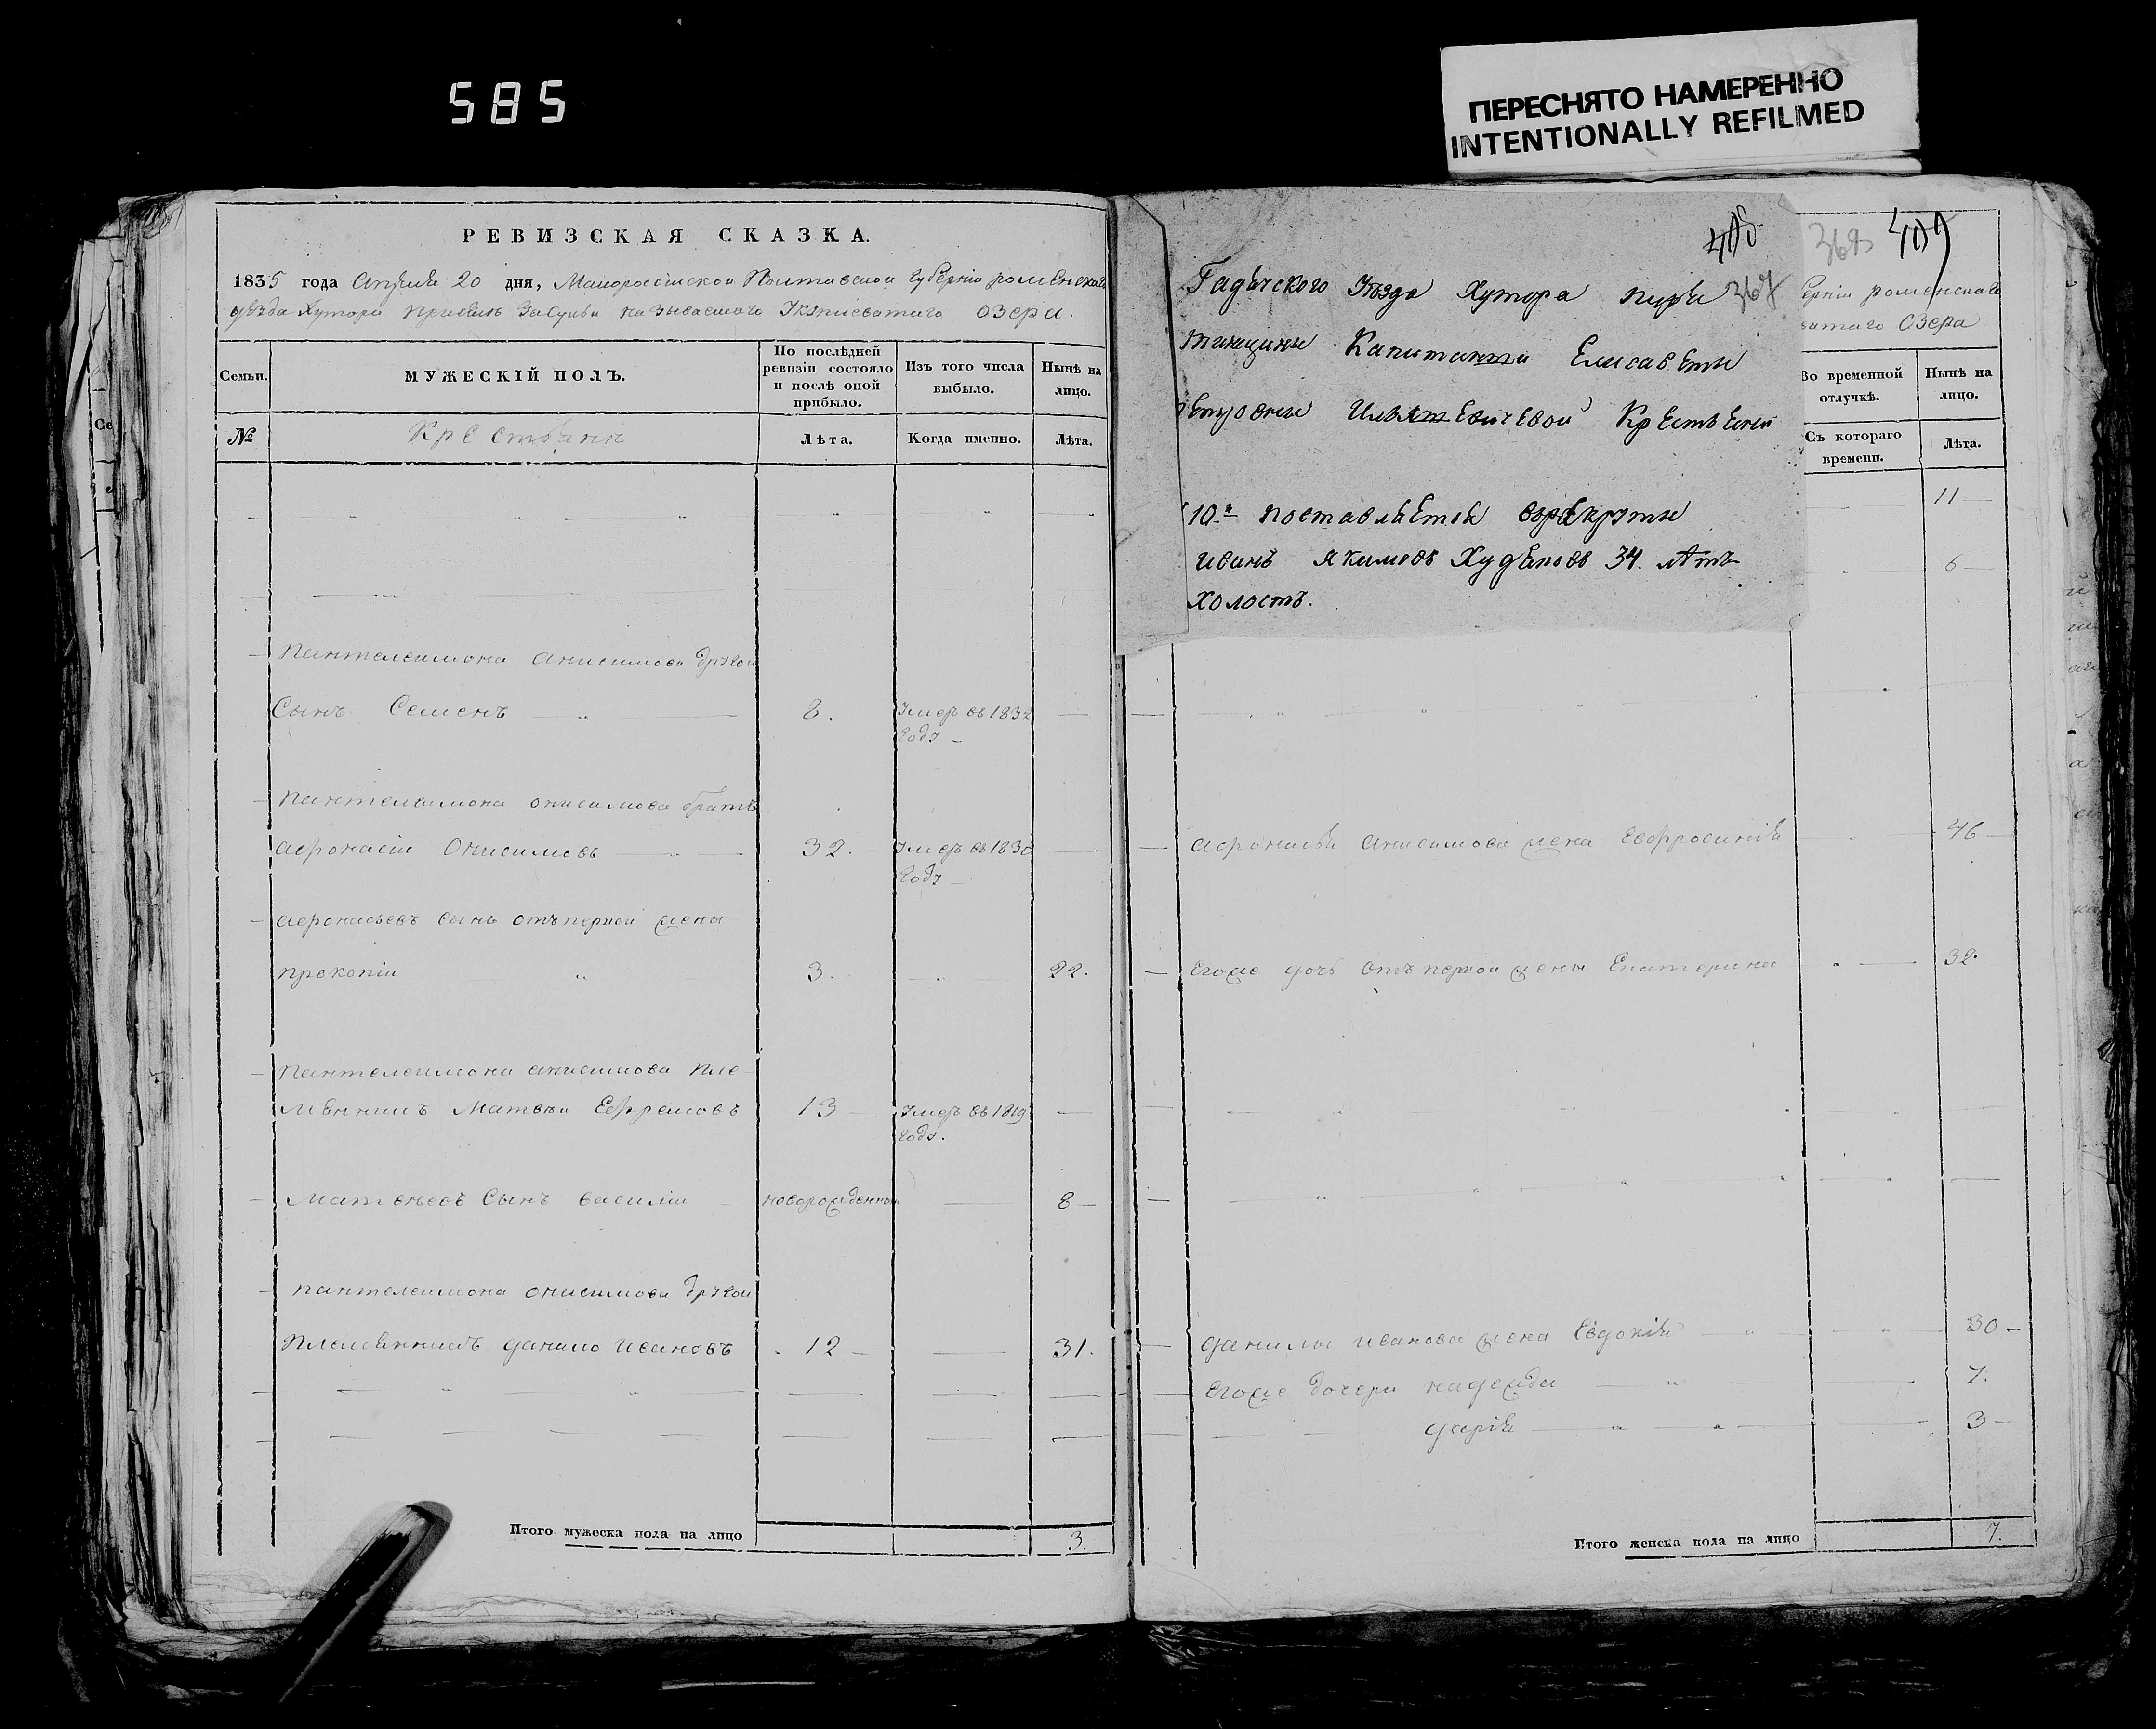 585
ПЕРЕСНЯТО НАМЕРЕННО
INTENTIONALLY REFILMED
РЕВИЗСКАЯ СКАЗКА.
1835 года Апреля 20 дня, Малоросійской Полтавской губерніи роменскаго
уезда Хутора называемаго озера.
Семьи.
МУЖЕСКІЙ ПОЛЪ.
По послѣдней ревизіи состояло и послѣ оной прибыло.
Изъ того числа выбыло.
Нынѣ на лицо.
№
Крестьяне
Лѣта.
Когда именно.
Лѣта.
пантелеимона анисимова другой
Сынъ Семенъ 8. Умеръ въ 1832
году
пантелеимона онисимова братъ
афонасій Онисимовъ 32. Умеръ въ 1830
году
афонасьевъ сынъ отъ первой жены
прокопій 3. 22.
пантелеимона анисимова пле
мянникъ Матвей Ефремовъ 13 Умеръ въ 1819
году.
Матвѣевъ Сынъ василій новорожденный 8
пантелеимона онисимова другой
племянникъ данило ивановъ 12 31.
Итого мужеска пола на лицо 3.
408
367
Гадячского Уезда Хутора
Капитанши Елисаветы
10.я поставляется врекруты
иванъ якимовъ Худяковъ 34. лѣтъ
холостъ.
368 409
ерніи роменскаго
ватаго Озера
Во временной отлучкѣ.
Нынѣ на лицо.
Съ котораго времени.
Лѣта.
11
6
афонасія анисимова жена Евфросинія 46
Егоже дочь отъ первой жены Екатерина 32.
данилы иванова жена Евдокія 30
Егоже дочери надежда 7.
дарія 3
Итого женска пола на лицо 7.